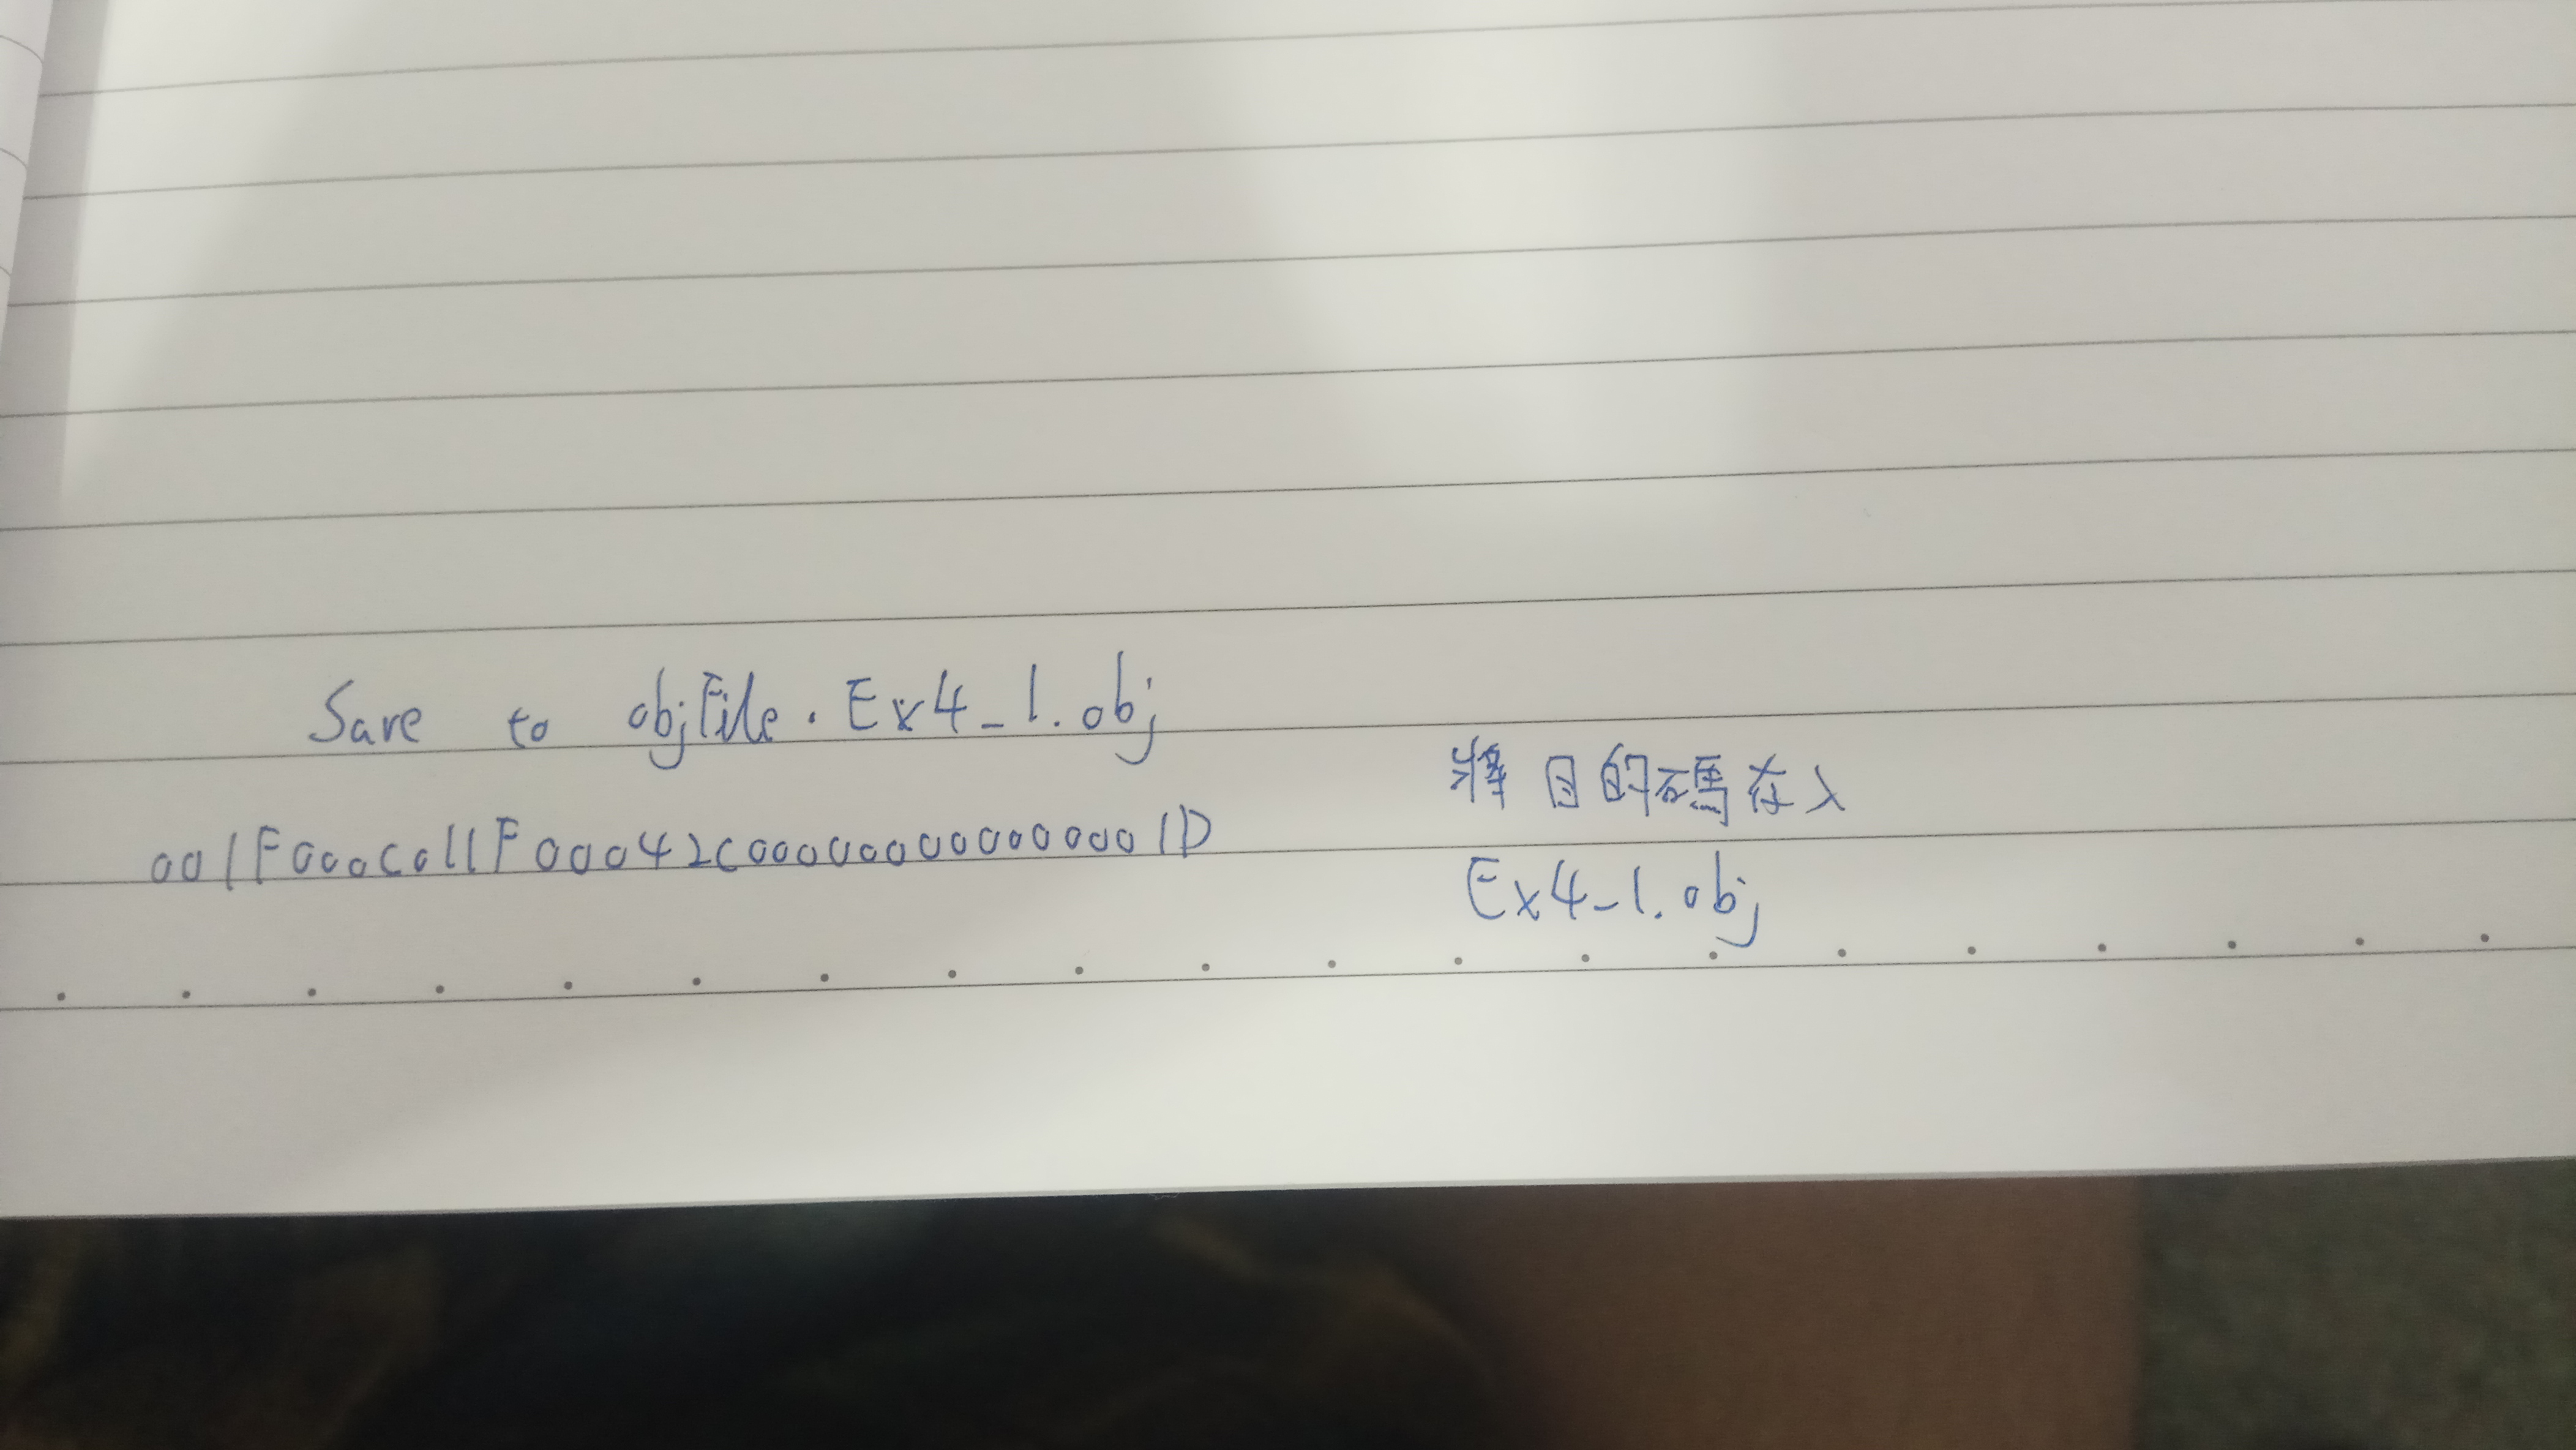 Save to objFile. Ex4_1.obj
001F000C011F00042C000000000000001D
將目的碼存入
Ex4_1.obj